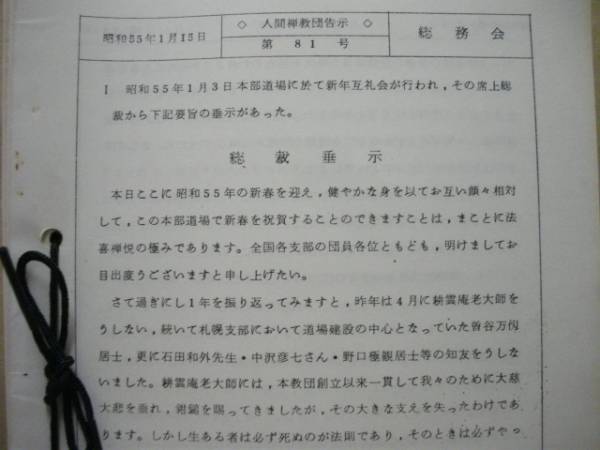 昭和55年1月15日
◇ 人間禅教団告示 ◇
第 81 号
総務会
I 昭和55年1月3日本部道場に於て新年互礼会が行われ,その席上総
裁から下記要旨の垂示があった。
総裁垂示
本日ここに昭和55年の新春を迎え,健やかな身を以てお互い顔々相対
して,この本部道場で新春を祝賀することのできますことは,まことに法
喜禅悦の極みであります。全国各支部の団員各位ともども,明けましてお
目出度うございますと申し上げたい。
さて過ぎにし1年を振り返ってみますと,昨年は4月に耕雲庵老大師を
うしない,続いて札幌支部において道場建設の中心となっていた菅谷万
居士,更に石田和外先生・中沢彦七さん・野口極観居士等の知友をうしな
いました。耕雲庵老大師には,本教団創立以来一貫して我々のために大慈
大悲を垂れ,鉗鎚を賜ってきましたが,その大きな支えを失ったわけであ
ります。しかし生ある者は必ず死ぬのが法則であり,そのときは必ずやっ